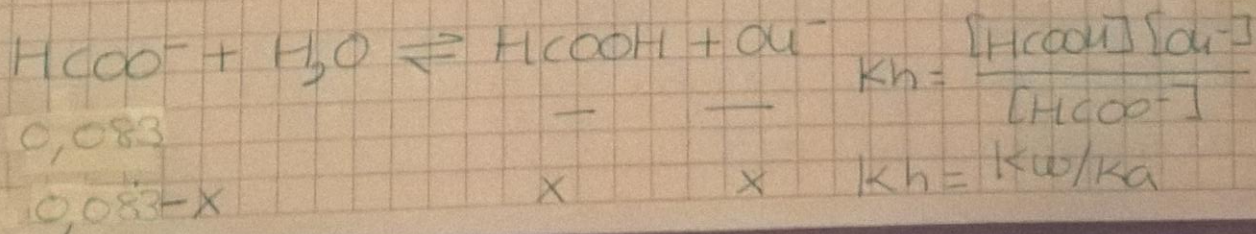 HCOO⁻ + H₂O ⇌ HCOOH + OH⁻ Kh = [HCOOH][OH⁻] / [HCOO⁻]
0,083 — —
0,083-x x x Kh = Kw/Ka